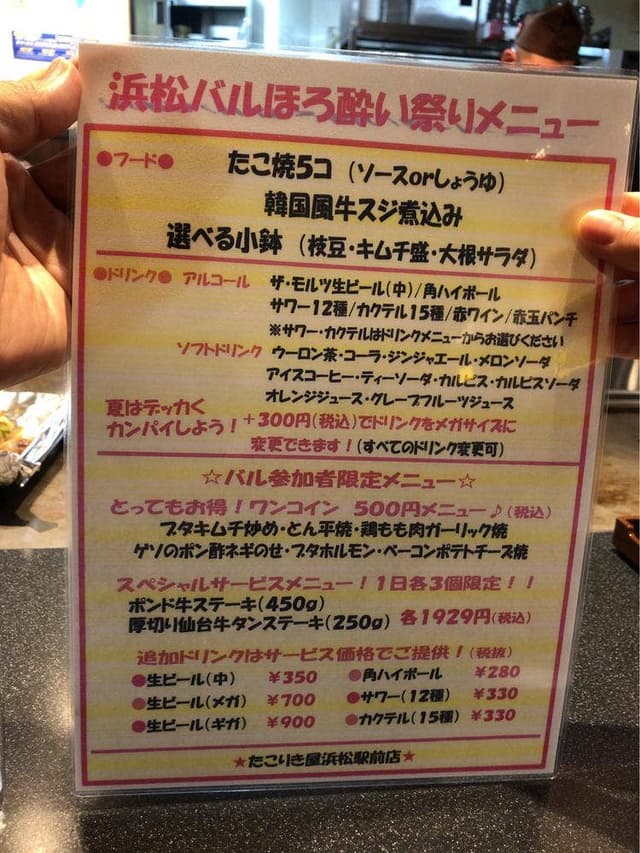 浜松バルほろ酔い祭りメニュー
●フード● たこ焼5コ (ソースorしょうゆ)
韓国風牛スジ煮込み
選べる小鉢 (枝豆・キムチ盛・大根サラダ)
●ドリンク● アルコール ザ・モルツ生ビール(中)/角ハイボール
サワー12種/カクテル15種/赤ワイン/赤玉パンチ
※サワー・カクテルはドリンクメニューからお選びください
ソフトドリンク ウーロン茶・コーラ・ジンジャエール・メロンソーダ
アイスコーヒー・ティーソーダ・カルピス・カルピスソーダ
オレンジジュース・グレープフルーツジュース
夏はデッカく
カンパイしよう! +300円(税込)でドリンクをメガサイズに
変更できます!(すべてのドリンク変更可)
☆バル参加者限定メニュー☆
とってもお得!ワンコイン 500円メニュー♪(税込)
ブタキムチ炒め・とん平焼・鶏もも肉ガーリック焼
ゲソのポン酢ネギのせ・ブタホルモン・ベーコンポテトチーズ焼
スペシャルサービスメニュー!1日各3個限定!!
ポンド牛ステーキ(450g)
厚切り仙台牛タンステーキ(250g) 各1929円(税込)
追加ドリンクはサービス価格でご提供!(税抜)
●生ビール(中) ¥350 ●角ハイボール ¥280
●生ビール(メガ) ¥700 ●サワー(12種) ¥330
●生ビール(ギガ) ¥900 ●カクテル(15種) ¥330
★たこりき屋浜松駅前店★